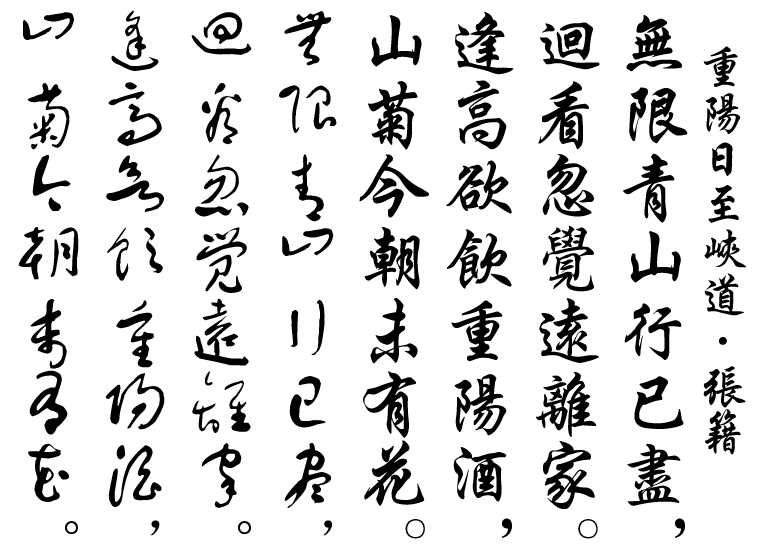 重陽日至峽道·張籍
無限青山行已盡，
迴看忽覺遠離家。
逢高欲飲重陽酒，
山菊今朝未有花。
無限青山行已盡，
迴看忽覺遠離家。
逢高欲飲重陽酒，
山菊今朝未有花。